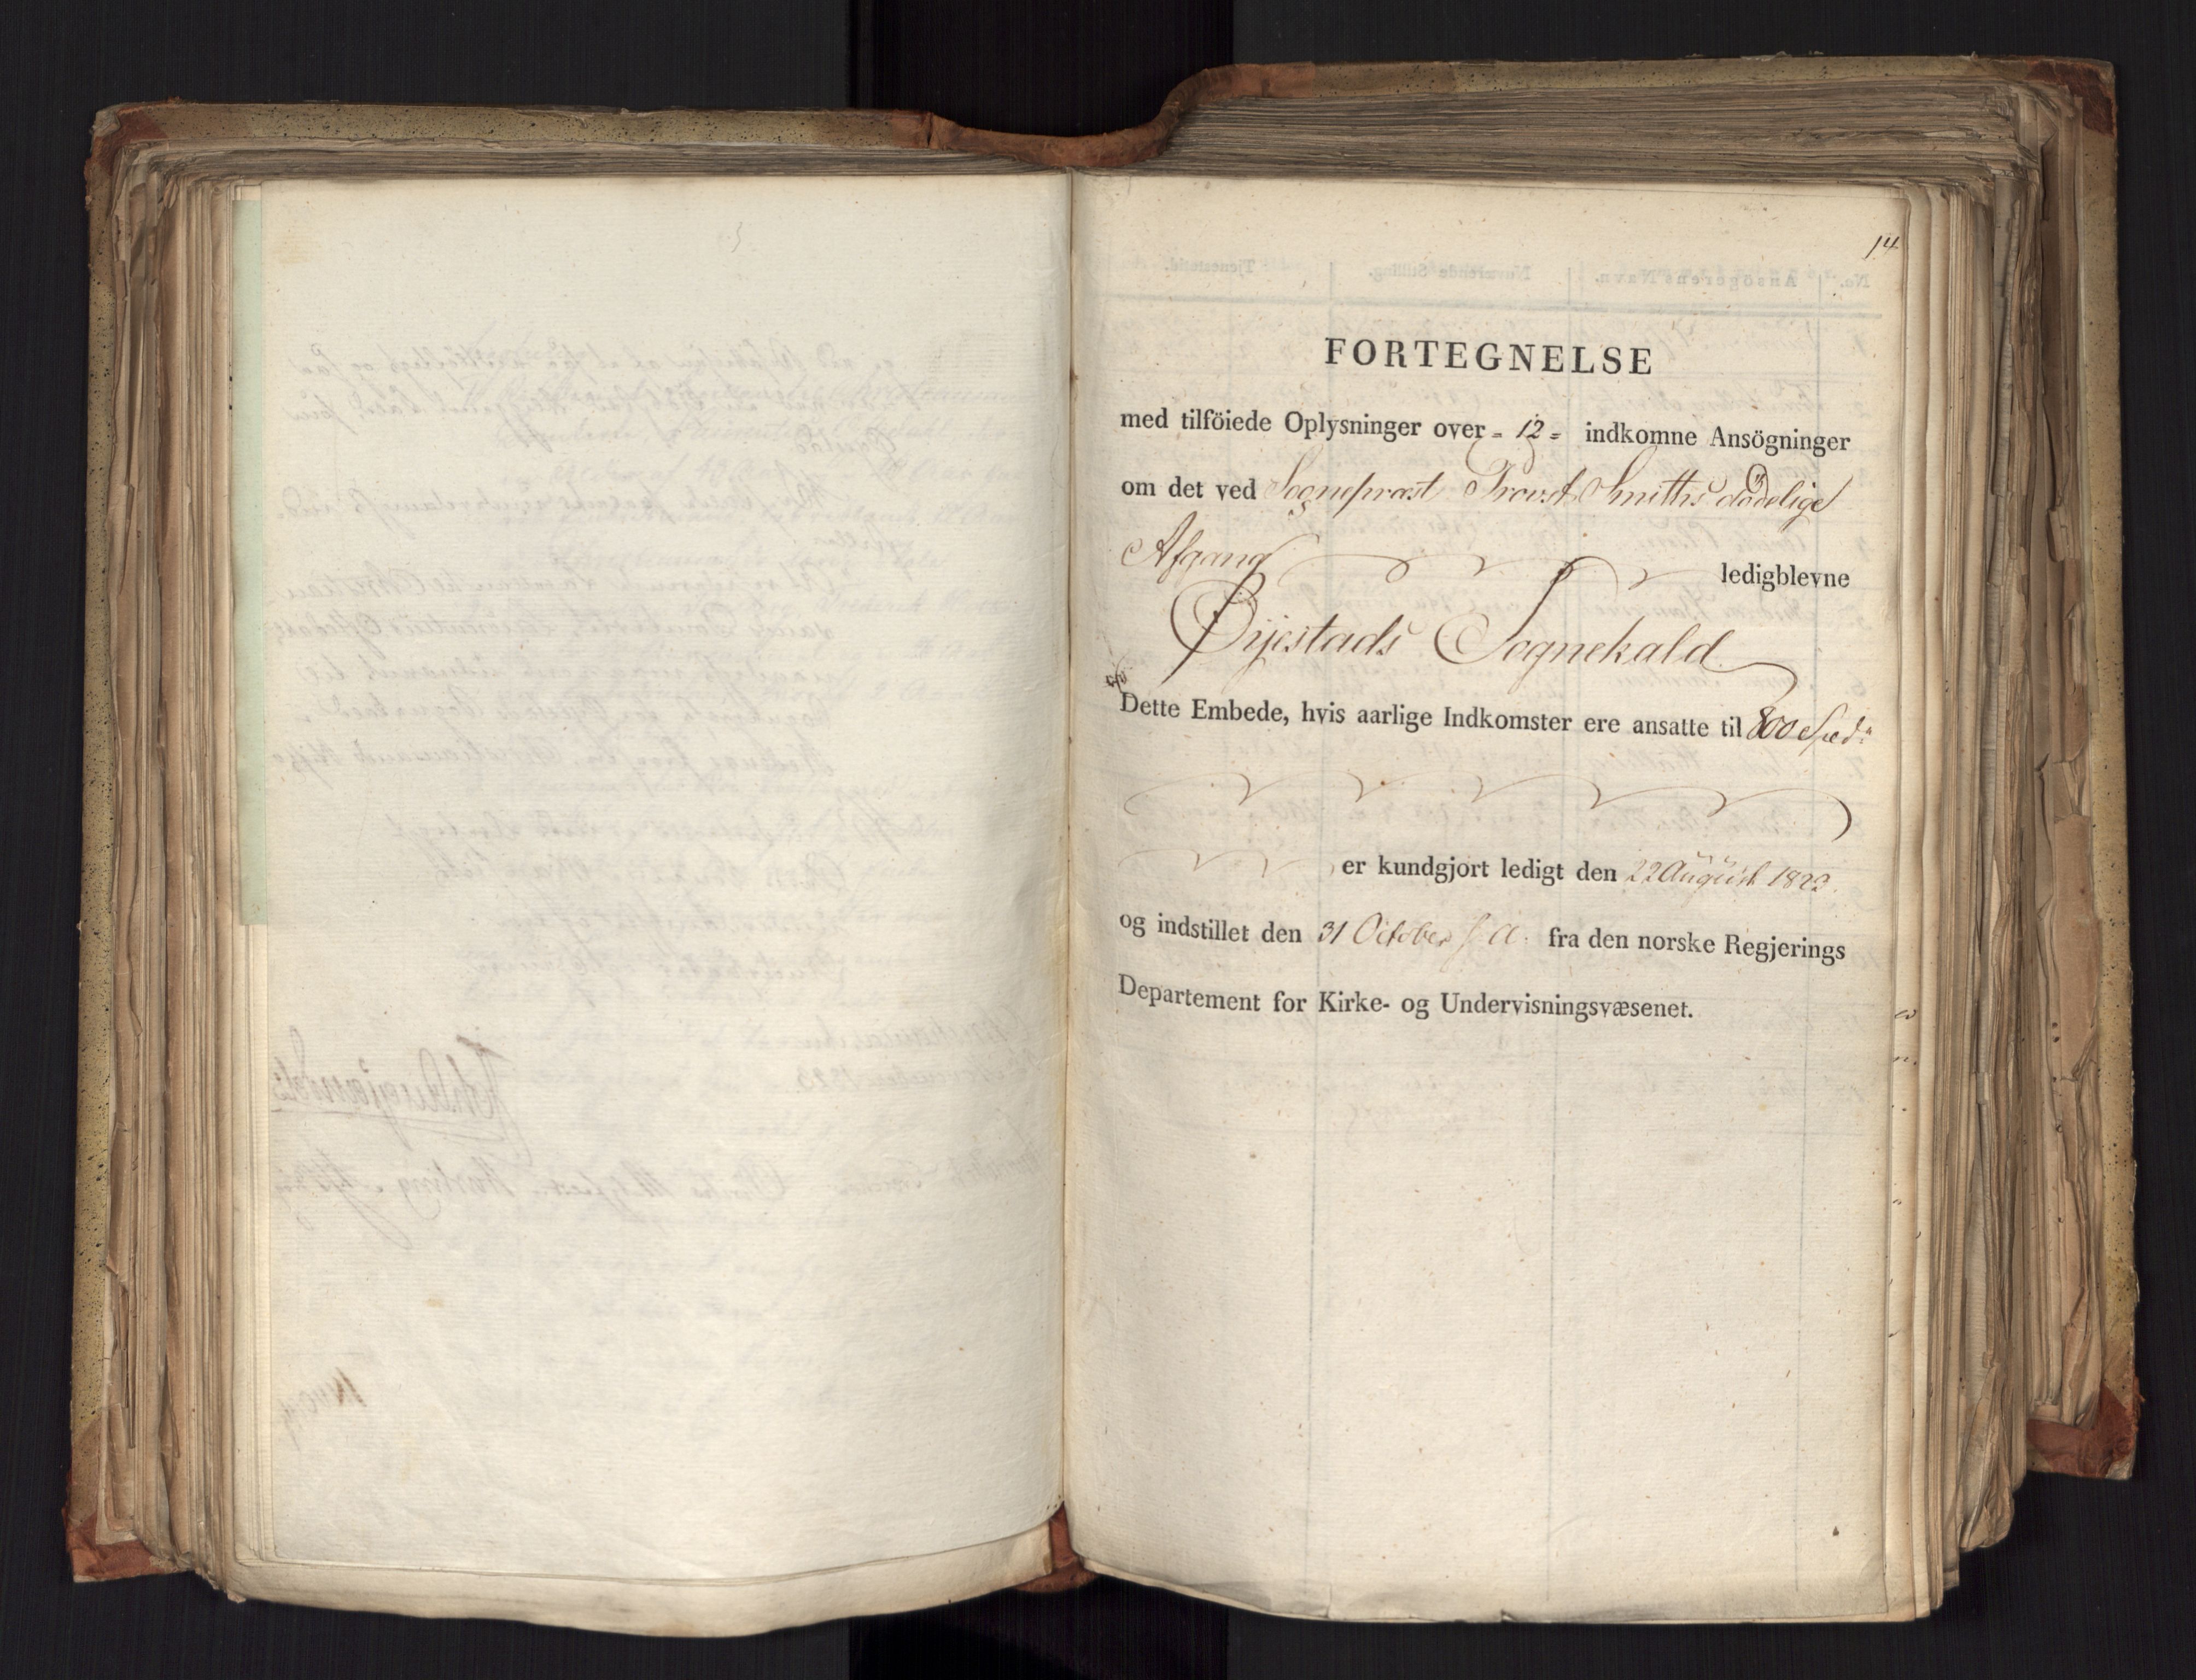 14
FORTEGNELSE
med tilföiede Oplysninger over = 12 = indkomne Ansögninger
om det ved Sognepræst Provst Smiths dödelige
Afgang ledigblevne
Øyestads Sognekald
Dette Embede, hvis aarlige Indkomster ere ansatte til 800 Spd
er kundgjort ledigt den 22 August 1823.
og indstillet den 31 October s. A. fra den norske Regjerings
Departement for Kirke- og Undervisningsvæsenet.